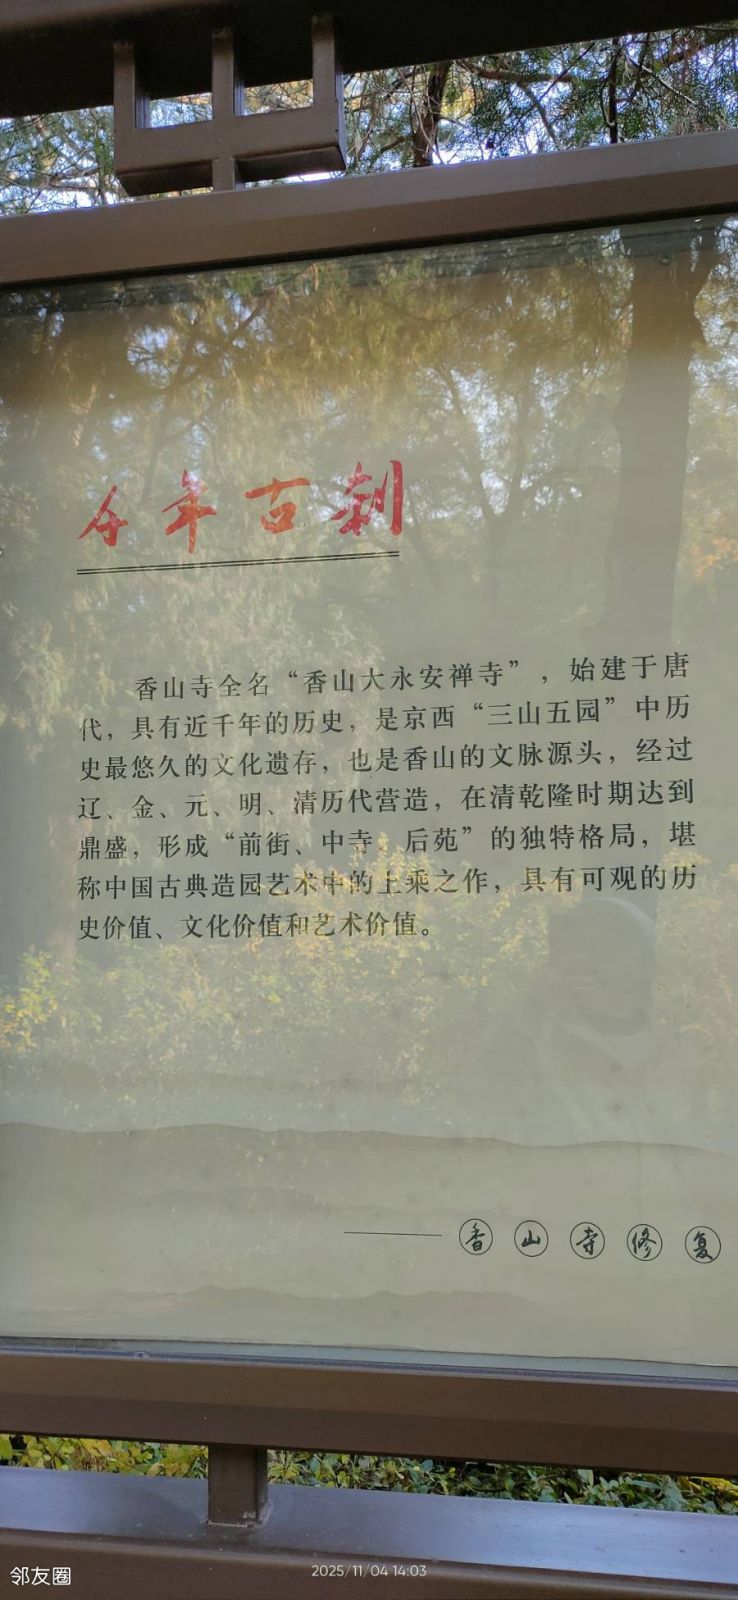 千年古刹
香山寺全名“香山大永安禅寺”，始建于唐
代，具有近千年的历史，是京西“三山五园”中历
史最悠久的文化遗存，也是香山的文脉源头，经过
辽、金、元、明、清历代营造，在清乾隆时期达到
鼎盛，形成“前街、中寺、后苑”的独特格局，堪
称中国古典造园艺术中的上乘之作，具有可观的历
史价值、文化价值和艺术价值。
——香山寺修复
邻友圈
2025/11/04 14:03